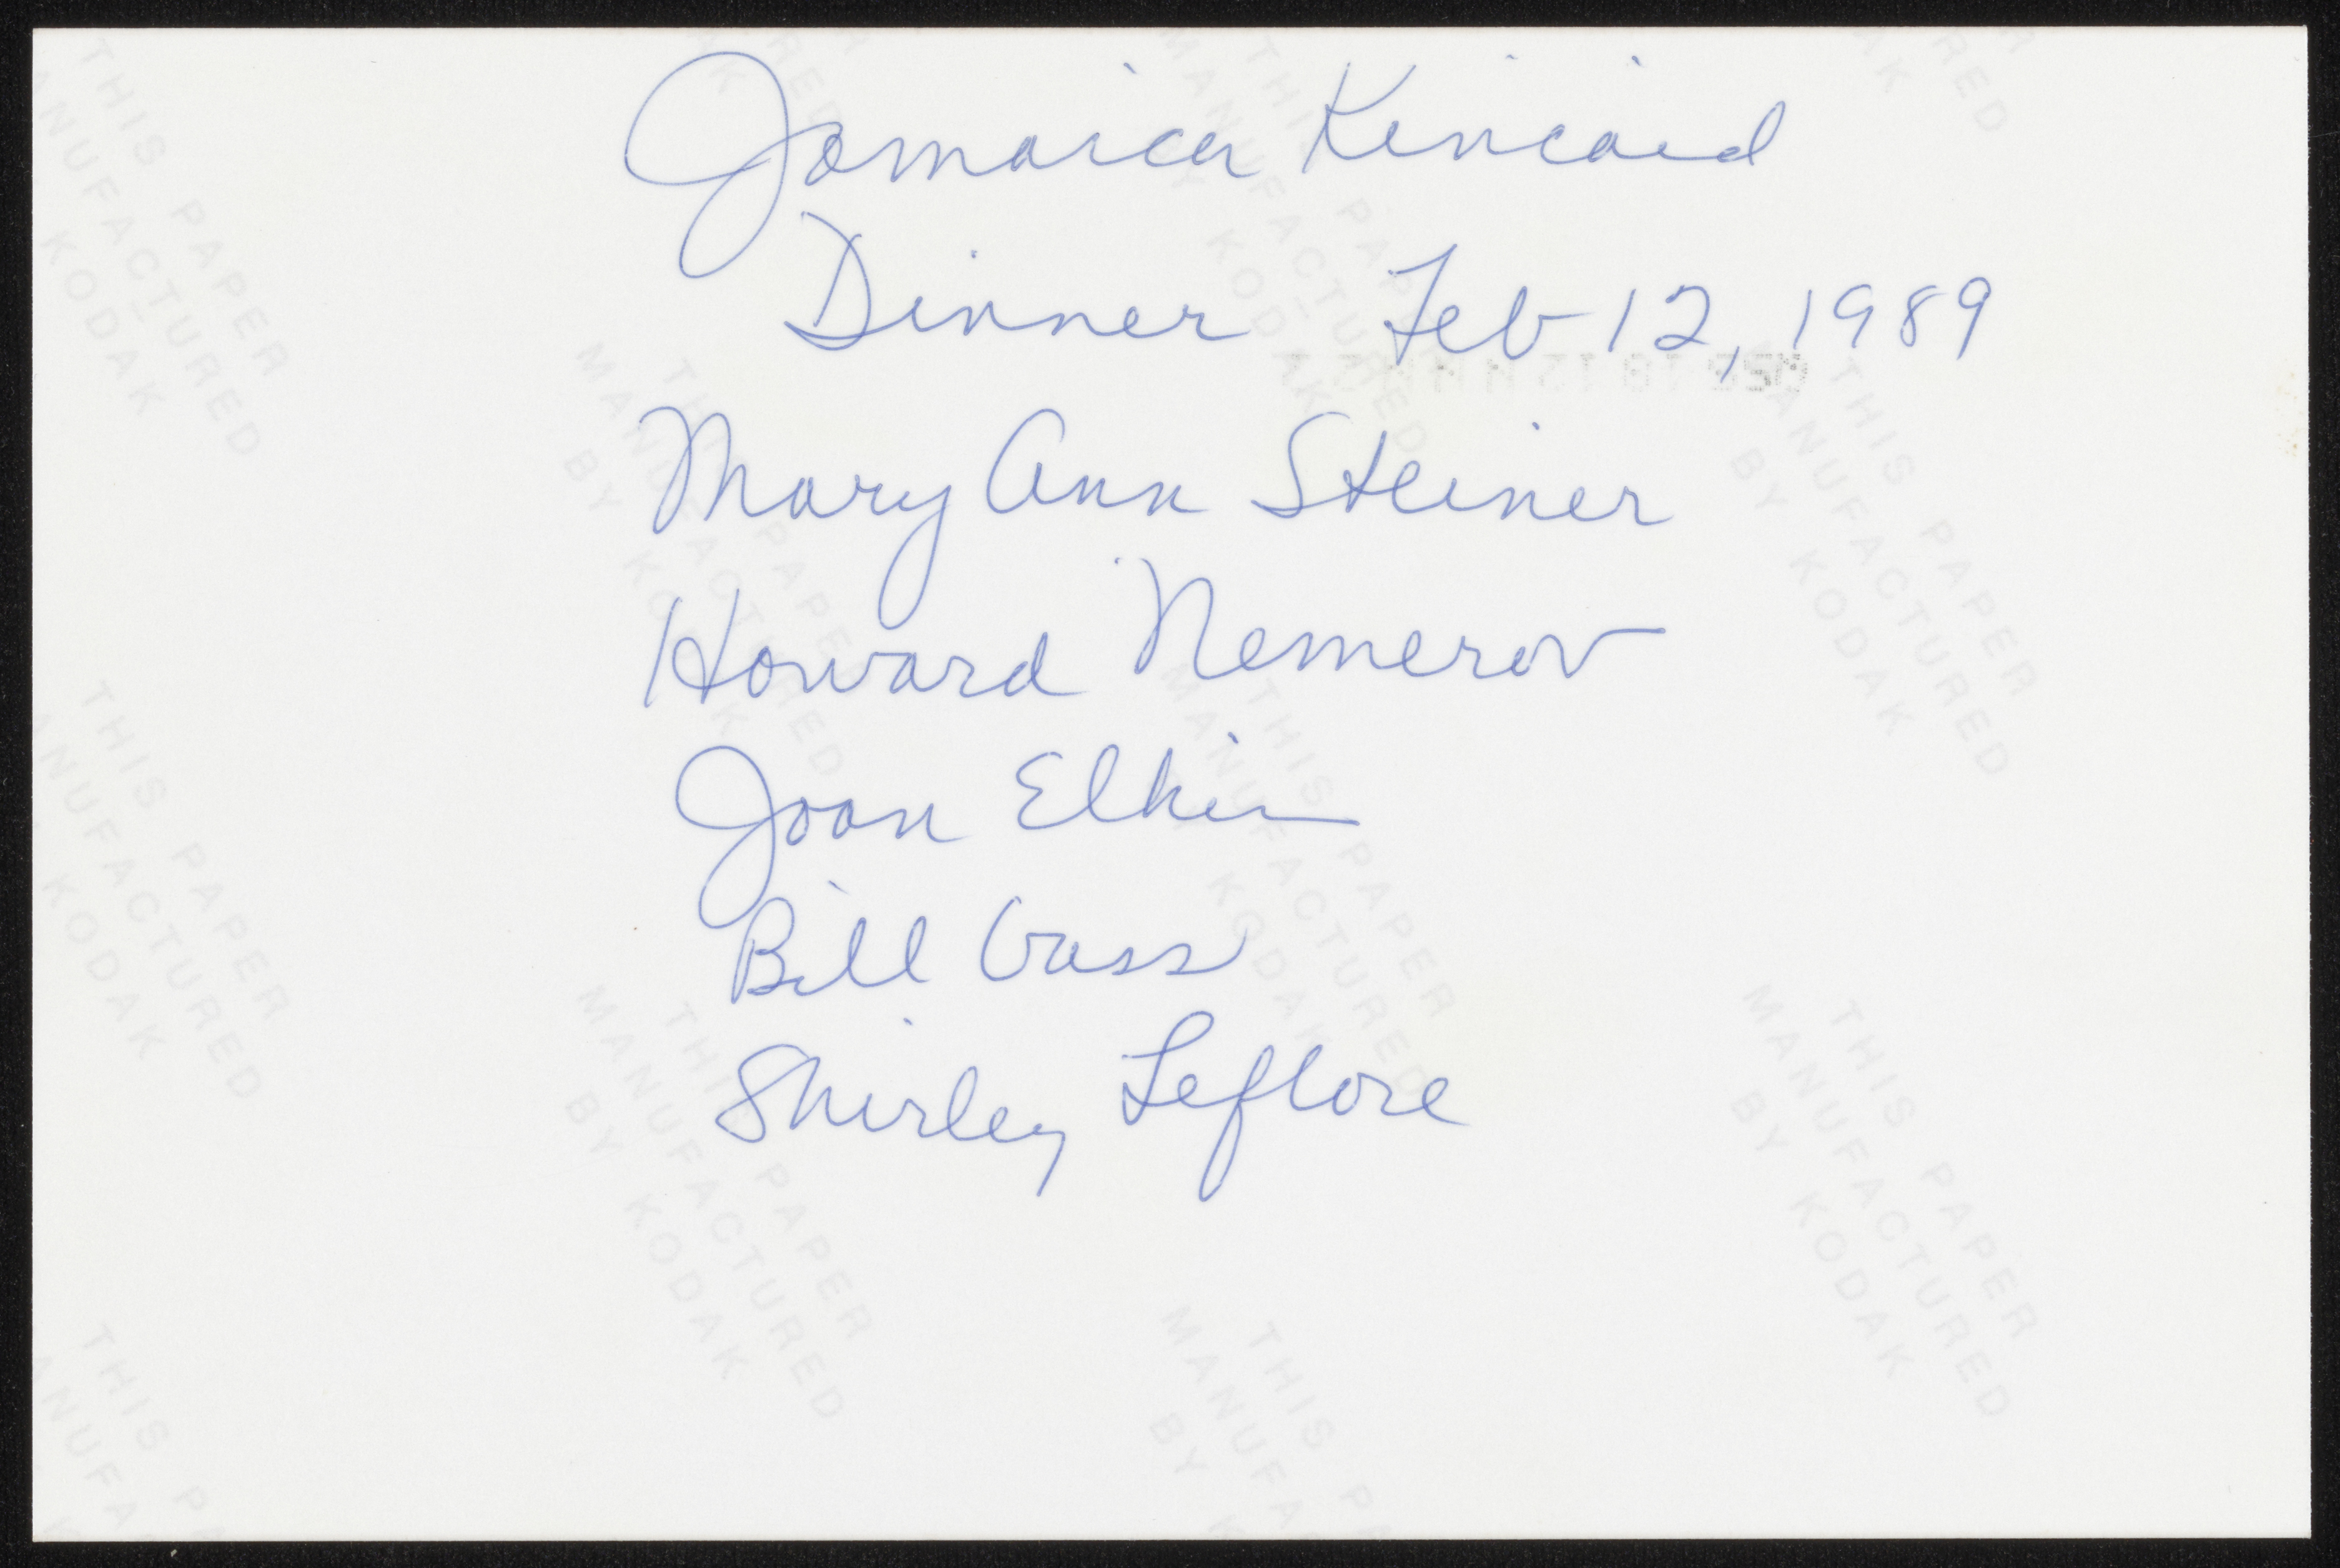 Jamaica Kincaid
Dinner Feb 12, 1989
Mary Ann Steiner
Howard Nemerov
Joan Elkin
Bill Gass
Shirley Leflore
THIS PAPER
MANUFACTURED
BY KODAK